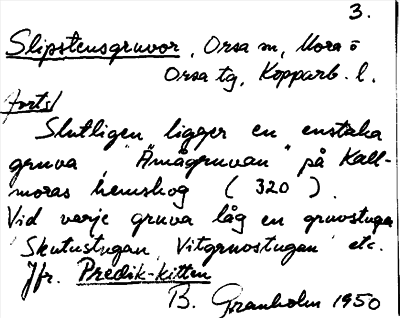 3.
Slipstensgruvor, Orsa sn, Mora ö
Orsa tg, Kopparb. l.
forts/
Slutligen ligger en enstaka
gruva "Ämågruvan" på Kall-
moras hemskog (320).
Vid varje gruva låg en gruvstuga
Skutustugan, Vitgruvstugan etc.
Jfr. Predik-kitten
B. Granholm 1950